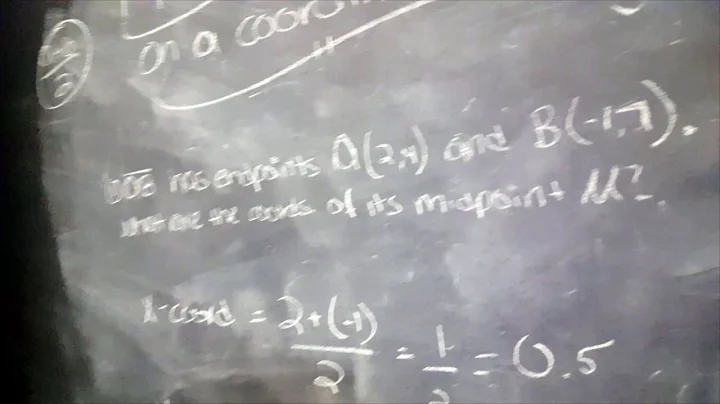 on a coordin
has endpoints A(2,4) and B(-1,7).
what are the coords of its midpoint M?
x-coord = 2+(-1)/2 = 1/2 = 0.5